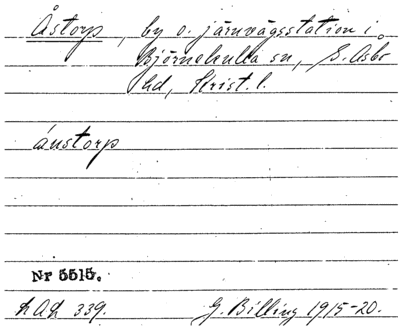 Åstorp, by o. järnvägsstation i
Björnekulla sn, S. Åsbo
hd, Krist. l.
áustorp
Nr 5515.
G. Billing 1915-20.